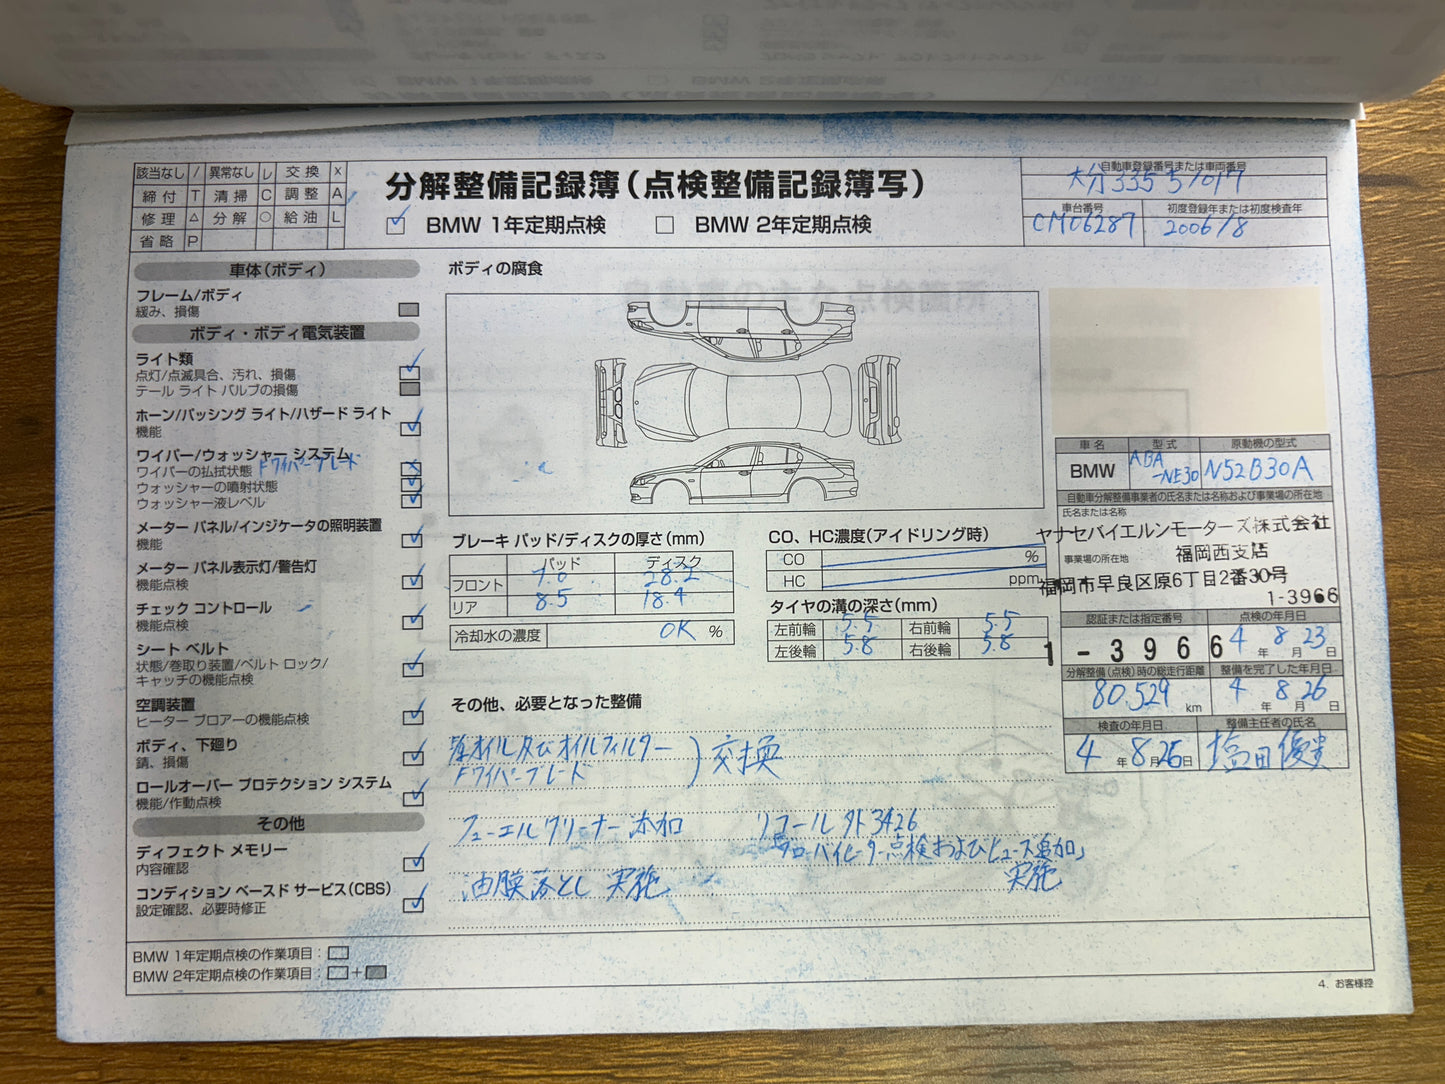 該当なし / 異常なし レ 交換 X
締付 T 清掃 C 調整 A
修理 △ 分解 ○ 給油 L
省略 P
分解整備記録簿(点検整備記録簿写)
BMW 1年定期点検 BMW 2年定期点検
自動車登録番号または車両番号
大分335
車台番号 初度登録年または初度検査年
CM06287 2006/8
車体(ボディ)
フレーム/ボディ
緩み、損傷
ボディ・ボディ電気装置
ライト類
点灯/点滅具合、汚れ、損傷
テール ライト バルブの損傷
ホーン/パッシング ライト/ハザード ライト
機能
ワイパー/ウォッシャー システム
ワイパーの払拭状態 Fワイパーブレード
ウォッシャーの噴射状態
ウォッシャー液レベル
メーター パネル/インジケータの照明装置
機能
メーター パネル表示灯/警告灯
機能点検
チェック コントロール
機能点検
シート ベルト
状態/巻取り装置/ベルト ロック/
キャッチの機能点検
空調装置
ヒーター ブロアーの機能点検
ボディ、下廻り
錆、損傷
ロールオーバー プロテクション システム
機能/作動点検
その他
ディフェクト メモリー
内容確認
コンディション ベースド サービス(CBS)
設定確認、必要時修正
ボディの腐食
ブレーキ パッド/ディスクの厚さ(mm)
パッド ディスク
フロント 28.2
リア 8.5 18.4
冷却水の濃度 OK %
CO、HC濃度(アイドリング時)
CO %
HC ppm
タイヤの溝の深さ(mm)
左前輪 5.5 右前輪 5.5
左後輪 5.8 右後輪 5.8
その他、必要となった整備
オイル及びオイルフィルター
Fワイパーブレード
交換
フューエルクリーナー添加
リコール 外3426
「ブローバイヒーター点検およびヒューズ追加」
実施
油膜落とし 実施
車名 型式 原動機の型式
BMW ABA-NE30 N52B30A
自動車分解整備事業者の氏名または名称および事業場の所在地
氏名または名称
ヤナセバイエルンモーターズ株式会社
事業場の所在地 福岡西支店
福岡市早良区原6丁目2番30号
1-3966
認証または指定番号 点検の年月日
1-3966 4年8月23日
分解整備(点検)時の総走行距離 整備を完了した年月日
80,529 km 4年8月26日
検査の年月日 整備主任者の氏名
4年8月26日 塩田優貴
BMW 1年定期点検の作業項目:
BMW 2年定期点検の作業項目: +
4. お客様控